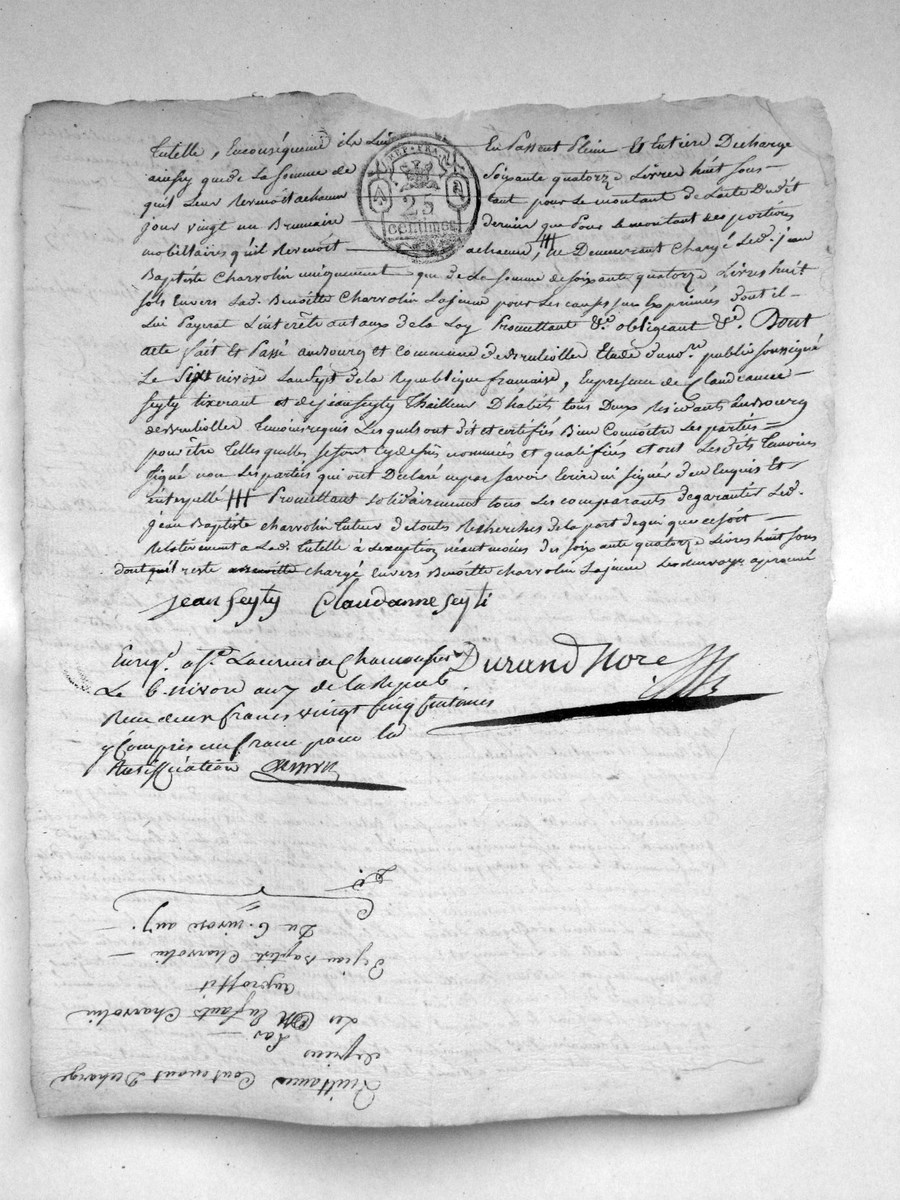 tutelle, Enconséquence ils Lui En Passent Pleine Et Entiere Decharge
ainsy que de La Somme de Soixante quatorze Livres huit Sous
REP. FRA.
25
centimes
quil Leur Revenoit achacun tant pour Le montant de Lacte Dudit
jour vingt un Brumaire dernier que Pour Le montant des portions
mobilliaires qu'il Revenoit achacun, ne Demeurant Chargé Led. jean
Baptiste Charvolin uniquement que de La Somme de Soixante quatorze Livres huit
sols Envers Lad. Benoitte Charvolin Lajeune pour Les causes sus Exprimées dont il
Lui Payerat L'interêt au taux de la Loy Promettant &c. obligeant &c. Dont
acte fait Et Passé au Bourg et commune de Brulliolles Etude du no.re public soussigné
Le Six nivose Lan Sept de la Republique francaise, En presence de Claudeanne
Seyty tixerant et de jean Seyty Thailleur D'habits tous Deux Residants au Bourg
de Brulliolles temoins requis Lesquels ont dit et certifiés Bien Connoître Les parties
pour être telles quelles se sont cy dessus nommées et qualifiées et ont Les dits temoins
signé non Les parties qui ont Declaré ne pas savoir Ecrire ni signer d'un Enquis Et
interpellé Promettant Solidairement tous Les comparants de garantir Led.
jean Baptiste Charvolin tuteur de touts Recherches de la part de qui que ce soit
Relativement a Lad. tutelle à Lexception néantmoins des soixante quatorze Livres huit sous
dont qu'il reste chargé Envers Benoitte Charvolin Lajeune approuvé
jean Seyty Claudanne Seyti
Enreg. a St. Laurent de Chamousset Durand Nore
Le 6 nivose an 7 de la Repub
Reçu deux francs vingt cinq Centimes
y Compris un franc pour la
Ratiffication
Quittance Contenant Decharge
Les Enfants Charvolin
auproffit
De jean Baptiste Charvolin
Du 6. nivose an 7.